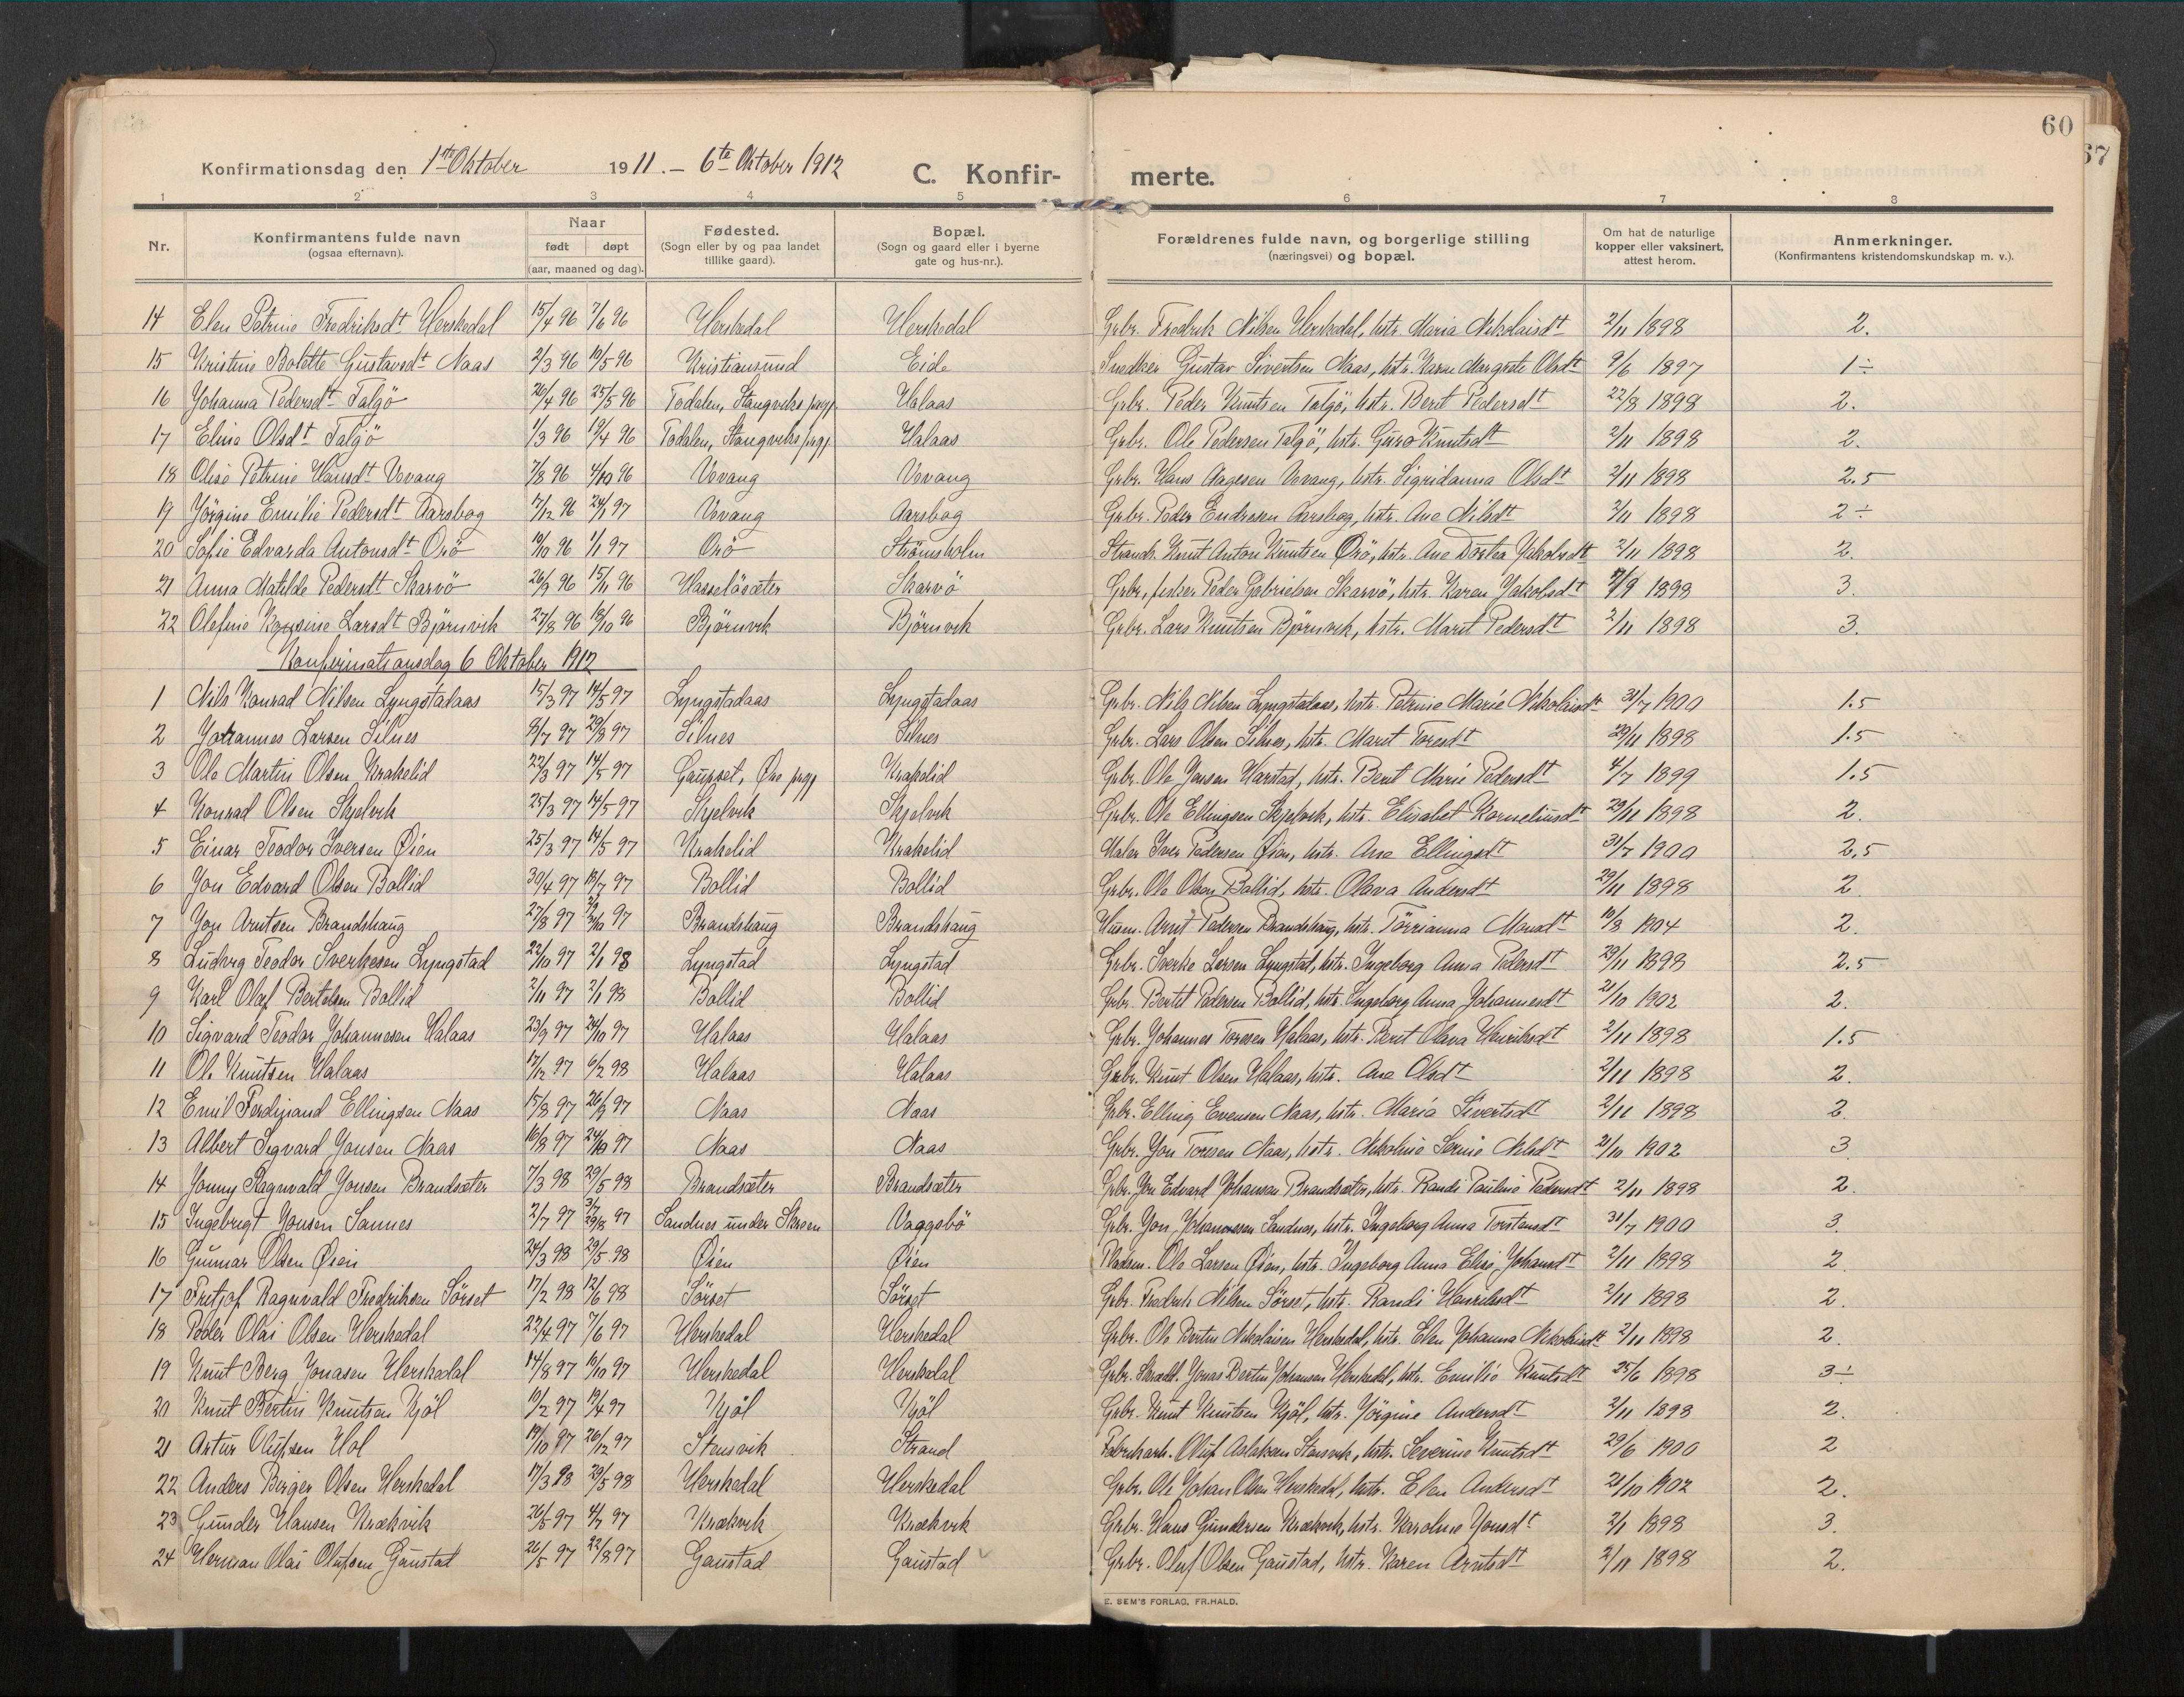 60
67
Konfirmationsdag den 1ste Oktober 1911. – 6te Oktober 1912 C. Konfir- merte.
1 2 3 4 5 6 7 8
Nr. Konfirmantens fulde navn (ogsaa efternavn). Naar født døpt (aar, maaned og dag). Fødested. (Sogn eller by og paa landet tillike gaard). Bopæl. (Sogn og gaard eller i byerne gate og hus-nr.). Forældrenes fulde navn, og borgerlige stilling (næringsvei) og bopæl. Om hat de naturlige kopper eller vaksinert, attest herom. Anmerkninger. (Konfirmantens kristendomskundskap m. v.).
14 Elen Petrine Fredriksdt Herskedal 15/4 96 7/6 96 Herskedal Herskedal Grbr. Fredrik Nilsen Herskedal, hstr. Maria Nikolaisdt 2/11 1898 2.
15 Kristine Bolette Gustavsdt Naas 2/3 96 10/5 96 Kristiansund Eide Snedker Gustav Sivertsen Naas, hstr. Karen Margrete Olsdt 9/6 1897 1÷
16 Johanna Pedersdt Talgö 26/4 96 25/5 96 Todalen, Stangviks prgj. Halaas Grbr. Peder Knutsen Talgö, hstr. Berit Pedersdt 22/8 1898 2.
17 Eline Olsdt Talgö 1/3 96 19/4 96 Todalen, Stangviks prgj. Halaas Grbr. Ole Pedersen Talgö, hstr. Guro Knutsdt 2/11 1898 2.
18 Olise Petrine Hansdt Vevang 7/8 96 4/10 96 Vevang Vevang Grbr. Hans Aagesen Vevang, hstr. Sigridanna Olsdt 2/11 1898 2.5
19 Jörgine Emilie Pedersdt Aarsbog 17/12 96 24/1 97 Vevang Aarsbog Grbr. Peder Endresen Aarsbog, hstr. Ane Nilsdt 2/11 1898 2÷
20 Sofie Edvarda Antonsdt Orö 10/10 96 1/1 97 Orö Strömsholm Strands. Knut Anton Knutsen Örö, hstr. Ane Dortea Jakobsdt 2/11 1898 2.
21 Anna Matilde Pedersdt Skarvö 26/9 96 15/11 96 Hasselösæter Skarvö Grbr., fisker Peder Gabrielsen Skarvö, hstr. Karen Jakobsdt 7/9 1898 3.
22 Olefine Larsdt Björnvik 27/8 96 18/10 96 Björnvik Björnvik Grbr. Lars Knutsen Björnvik, hstr. Marit Pedersdt 2/11 1898 3.
Konfirmationsdag 6 Oktober 1912
1 Nils Konrad Nilsen Lyngstadaas 15/3 97 14/5 97 Lyngstadaas Lyngstadaas Grbr. Nils Nilsen Lyngstadaas, hstr. Petrine Marie Nikolaisdt 31/7 1900 1.5
2 Johannes Larsen Silnes 8/7 97 29/8 97 Silnes Silnes Grbr. Lars Olsen Silnes, hstr. Marit Toresdt 29/11 1898 1.5
3 Ole Martin Olsen Krakelid 22/3 97 14/5 97 Gaupset, Öre prgj Krakelid Grbr. Ole Jensen Harstad, hstr. Berit Marie Pedersdt 4/7 1899 1.5
4 Konrad Olsen Skjelvik 25/3 97 14/5 97 Skjelvik Skjelvik Grbr. Ole Ellingsen Skjelvik, hstr. Elisabet Korneliusdt 29/11 1898 2.
5 Einar Teodor Iversen Øien 25/3 97 14/5 97 Krakelid Krakelid Maler Iver Pedersen Øien, hstr. Ane Ellingsdt 31/7 1900 2,5
6 Jon Edvard Olsen Bollid 30/4 97 18/7 97 Bollid Bollid Grbr. Ole Olsen Bollid, hstr. Olava Andersdt 29/11 1898 2
7 Jon Arntsen Brandshaug 27/8 97 24/10 97 Brandshaug Brandshaug Husm. Arnt Pedersen Brandshaug, hstr. Törrianna Monsdt 10/8 1904 2.
8 Ludvig Teodor Sverkesen Lyngstad 22/10 97 2/1 98 Lyngstad Lyngstad Grbr. Sverke Larsen Lyngstad, hstr. Ingeborg Anna Pedersdt 29/11 1898 2.5
9 Karl Olaf Bertelsen Bollid 2/11 97 2/1 98 Bollid Bollid Grbr. Bertel Pedersen Bollid, hstr. Ingeborg Anna Johannesdt 21/10 1902 2.
10 Sigvard Teodor Johannesen Halaas 23/9 97 24/10 97 Halaas Halaas Grbr. Johannes Toresen Halaas, hstr. Berit Olava Henriksdt 2/11 1898 1.5
11 Ole Knutsen Halaas 17/12 97 6/2 98 Halaas Halaas Grbr. Knut Olsen Halaas, hstr. Ane Olsdt 2/11 1898 2.
12 Emil Ferdinand Ellingsen Naas 15/8 97 26/9 97 Naas Naas Grbr. Elling Evensen Naas, hstr. Maria Sivertsdt 2/11 1898 2.
13 Albert Sigvard Jonsen Naas 16/8 97 24/10 97 Naas Naas Grbr. Jon Toresen Naas, hstr. Nikoline Serine Nilsdt 21/10 1902 3.
14 Jonny Ragnvald Jonsen Brandsæter 7/3 98 29/5 98 Brandsæter Brandsæter Grbr. Jon Edvard Johansen Brandsæter, hstr. Randi Pauline Pedersdt 2/11 1898 2.
15 Ingebrigt Jonsen Sannes 2/7 97 29/8 97 Sandnes under Skeen Vaagsbö Grbr. Jon Johannessen Sandnes, hstr. Ingeborg Anna Torstensdt 31/7 1900 3.
16 Gunnar Olsen Øien 24/3 98 29/5 98 Øien Øien Pladsm. Ole Larsen Øien, hstr. Ingeborg Anna Elise Johansdt 2/11 1898 2
17 Fretjof Ragnvald Fredriksen Sörset 17/2 98 12/6 98 Sörset Sörset Grbr. Fredrik Nilsen Sörset, hstr. Randi Henriksdt 2/11 1898 2.
18 Peder Olai Olsen Herskedal 22/4 97 7/6 97 Herskedal Herskedal Grbr. Ole Bertin Nikolaisen Herskedal, hstr. Elen Johanna Nikolaisdt 2/11 1898 2
19 Knut Berg Jonasen Herskedal 14/8 97 10/10 97 Herskedal Herskedal Grbr. Skradd. Jonas Bertin Johansen Herskedal, hstr. Emilie Knutsdt 25/6 1898 3÷
20 Knut Bertin Knutsen Kjöl 10/2 97 19/4 97 Kjöl Kjöl Grbr. Knut Knutsen Kjöl, hstr. Jörgine Andersdt 2/11 1898 2.
21 Artur Olufsen Hol 19/10 97 26/12 97 Stensvik Strand Fabrikarb. Oluf Aslaksen Stensvik, hstr. Severine Knutsdt 29/6 1900 2
22 Anders Birger Olsen Herskedal 17/3 98 29/5 98 Herskedal Herskedal Grbr. Ole Johan Olsen Herskedal, hstr. Elen Andersdt 21/10 1902 2.
23 Gunder Hansen Krækvik 26/5 97 4/7 97 Krækvik Krækvik Grbr. Hans Gundersen Krækvik, hstr. Karoline Jonsdt 2/1 1898 3.
24 Herman Olai Olufsen Gaustad 26/5 97 22/8 97 Gaustad Gaustad Grbr. Oluf Olsen Gaustad, hstr. Karen Arntsdt 2/11 1898 2.
E. SEM'S FORLAG, FR.HALD.